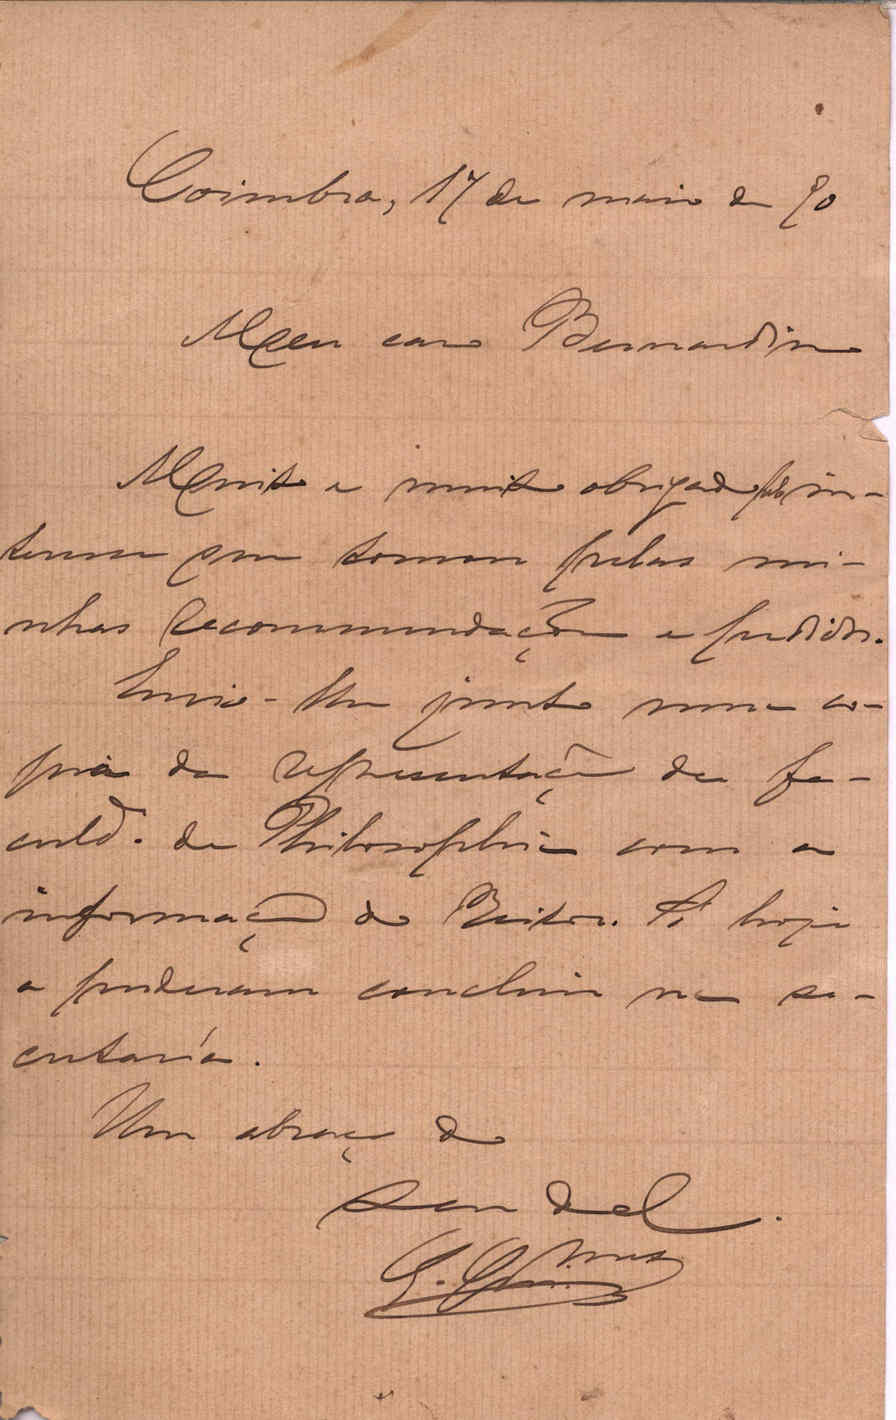 Coimbra, 17 de maio de 90
Meu caro Bernardino
Muito e muito obrigado pelo in-
teresse que tomou pelas mi-
nhas recommendações e pedidos.
Envio-lhe junto uma co-
pia da representação da fa-
culd.e de Philosophia com a
informação do Reitor. Só hoje
a puderam concluir na se-
cretaría.
Um abraço do
seu del